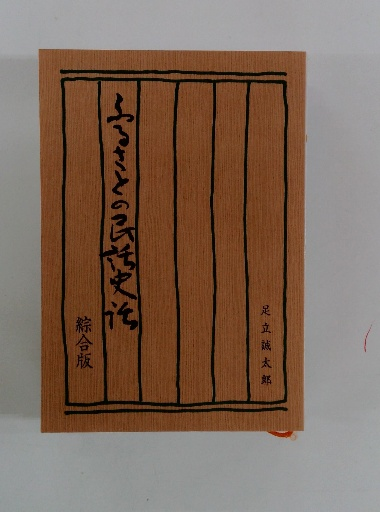 ふるさとの民話史話
綜合版
足立誠太郎